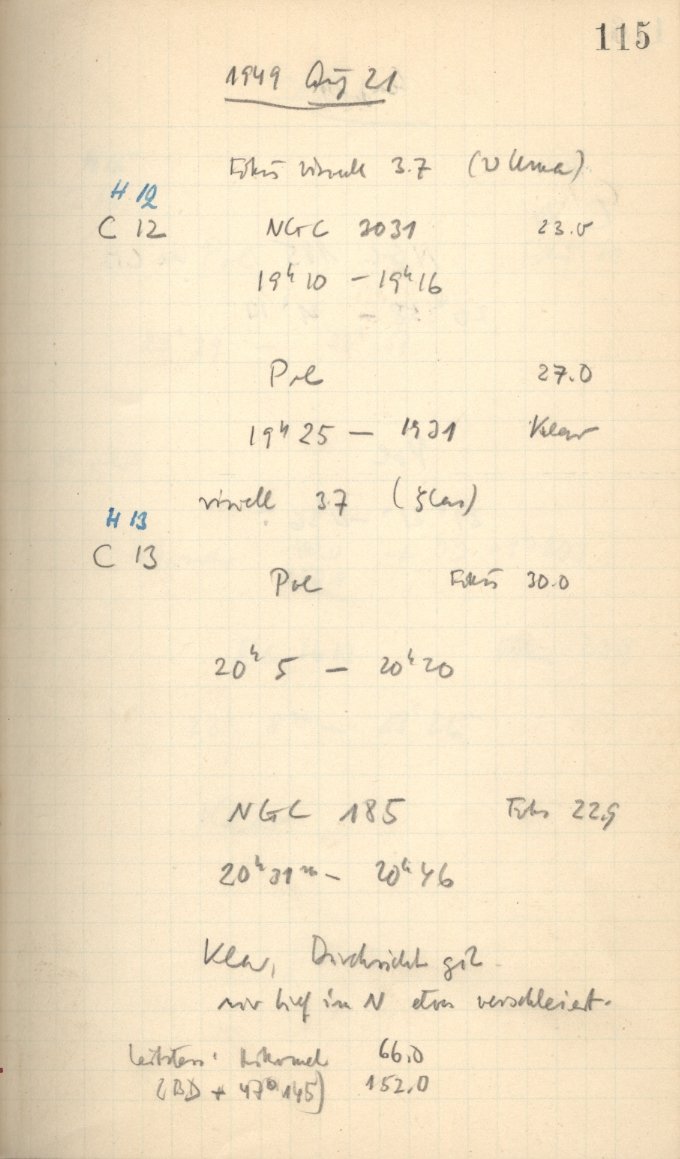 115
1949 Aug 21
Fokus visuell 3.7 (υ Urma)
H 12
C 12 NGC 3031 23.0
19h 10 – 19h 16
Pol 27.0
19h 25 – 1931 Klar
visuell 3.7 (ζ Cas)
H 13
C 13
Pol Fokus 30.0
20h 5 – 20h 20
NGC 185 Fokus 22.9
20h 31m – 20h 46
Klar, Durchsicht gut.
nur tief im N etwas verschleiert.
Leitstern: 66.0
(BD + 47° 145) 152.0